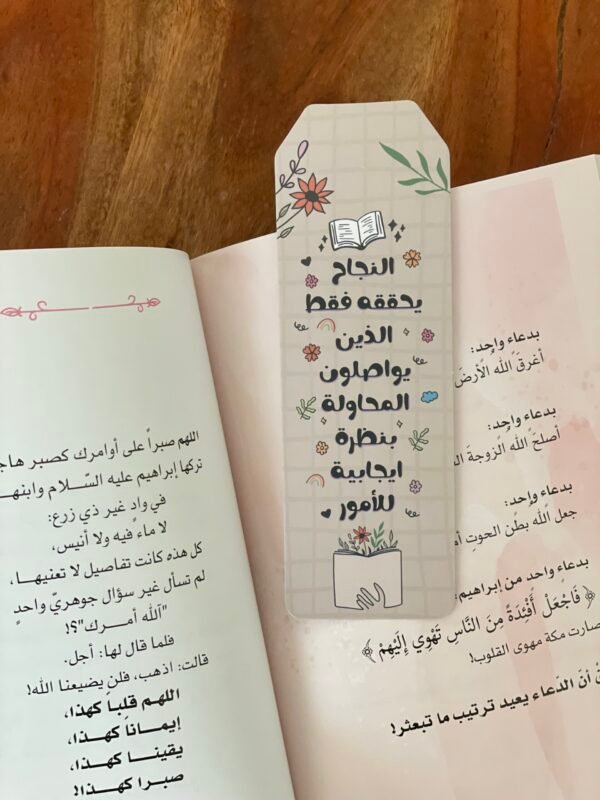 النجاح
يحققه فقط
الذين
يواصلون
المحاولة
بنظرة
ايجابية
للأمور
بدعاء واحد:
أغرقَ الله الأرضَ
بدعاء واحد:
أصلحَ الله الزوجةَ
بدعاء واحد:
جعل الله بطن الحوتِ
بدعاء واحد من إبراهيم:
﴿ فَاجْعَلْ أَفْئِدَةً مِنَ النَّاسِ تَهْوِي إِلَيْهِمْ ﴾
صارت مكة مهوى القلوب!
أنَ الدّعاء يعيد ترتيب ما تبعثر!
اللهم صبراً على أوامرك كصبر
تركها إبراهيم عليه السّـلام وابنهـا
في وادٍ غير ذي زرع:
لا ماء فيه ولا أنيس،
كل هذه كانت تفاصيل لا تعنيهـا،
لم تسأل غير سؤال جوهريّ واحدٍ
"آلله أمـرك"؟!
فلما قال لها: أجل.
قالت: اذهب، فلن يضيعنا الله!
اللهم قلباً كهذا،
إيمـانـاً كهـذا،
يقينـا كهـذا،
صبـرا كهـذا!